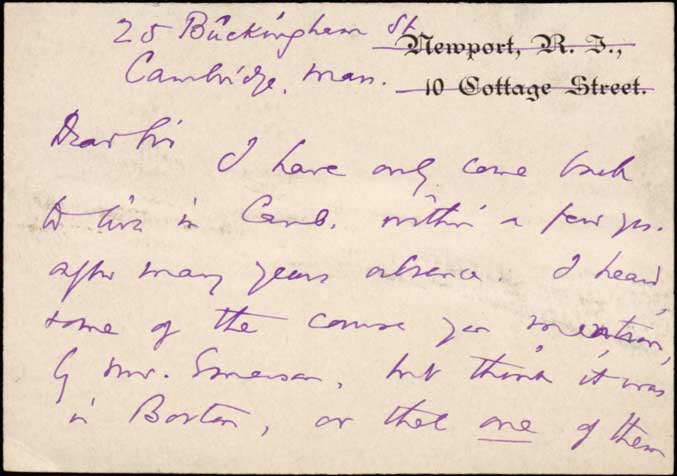 25 Buckingham St
Cambridge, Mass.
Newport, R. I.,
10 Cottage Street.
Dear Sir
I have only come back
to live in Camb. within a few yrs.
after many years absence. I heard
some of the course you mention,
by Mr. Emerson, but think it was
in Boston, or that one of them